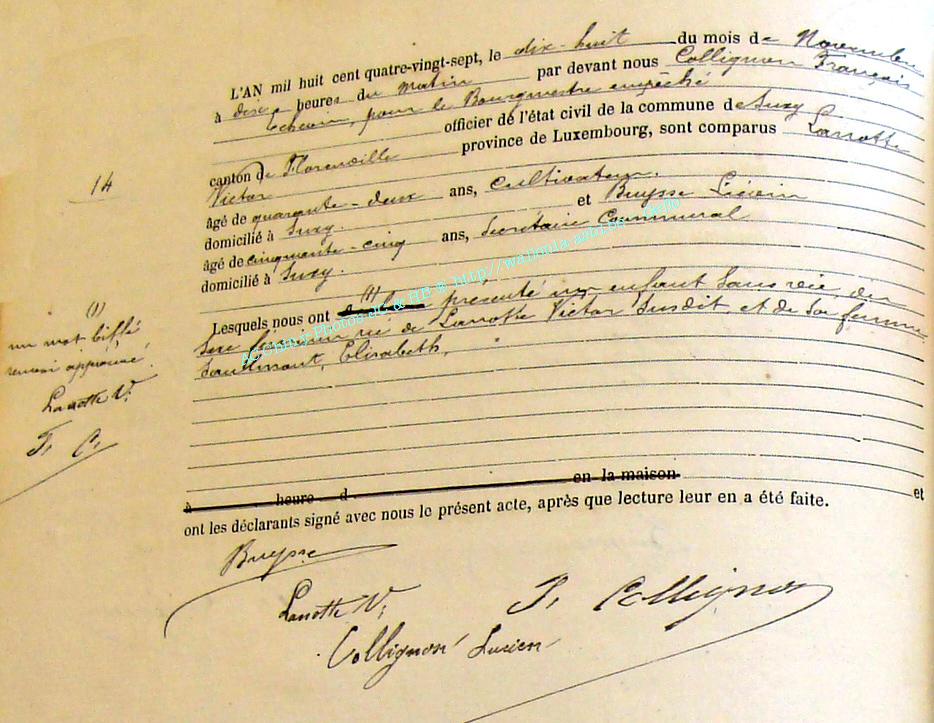 L'AN mil huit cent quatre-vingt-sept, le dix-huit du mois de Novembre
à dix heures du matin par devant nous Collignon François
Echevin, pour le Bourgmestre empêché
officier de l'état civil de la commune de Suxy
canton de Florenville province de Luxembourg, sont comparus Lanotte
Victor
âgé de quarante-deux ans, Cultivateur.
domicilié à Suxy. et Buysse Livin
âgé de cinquante-cinq ans, Secrétaire Communal
domicilié à Suxy.
(1)
Lesquels nous ont présenté un enfant Sans vie du
Sexe féminin née de Lanotte Victor Susdit, et de Son femme
Elisabeth,
à heure d en la maison
et
ont les déclarants signé avec nous le présent acte, après que lecture leur en a été faite.
Buysse
Lanotte V. F. Collignon
Collignon Lucien
14
(1)
un mot biffé
approuvé.
Lanotte V.
F. C.
http//wallonia-asbl.be